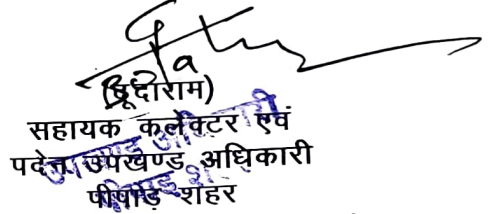 (बूदाराम)
सहायक कलेक्टर एवं
पदेन उपखण्ड अधिकारी
पीपाड़ शहर